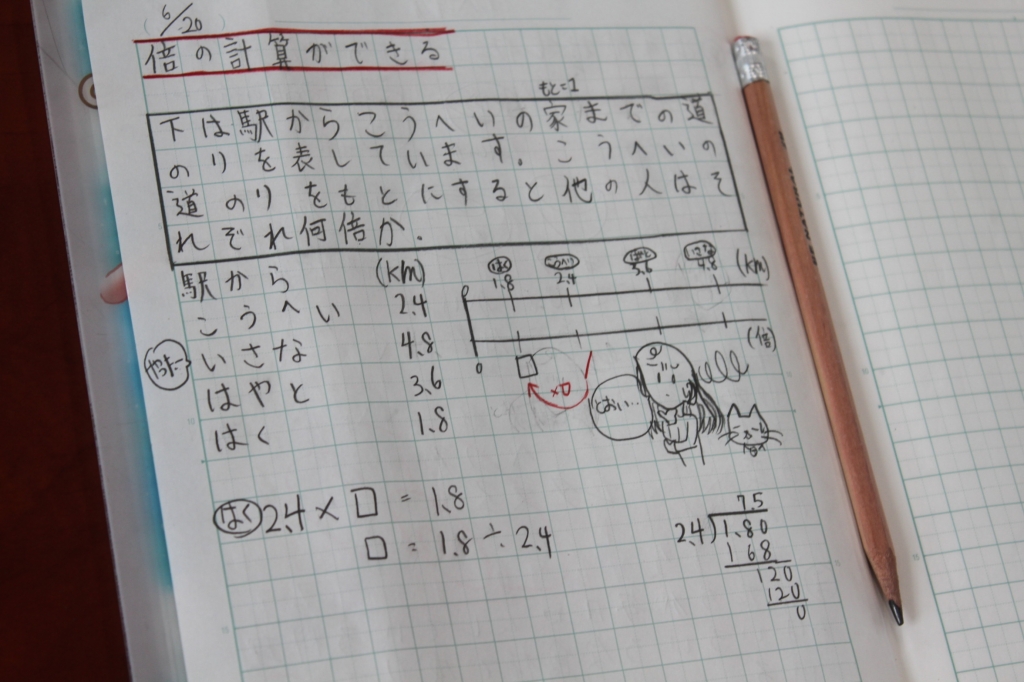 6/20
倍の計算ができる
もと=1
下は駅からこうへいの家までの道
のりを表しています。こうへいの
道のりをもとにすると他の人はそ
れぞれ何倍か.
駅から (km)
こうへい 2.4
いさな 4.8
はやと 3.6
はく 1.8
やったー
はく こうへい はやと いさな
1.8 2.4 3.6 4.8 (km)
0
(倍)
0 □ 1
×□
とおい…
はく 2.4 × □ = 1.8
□ = 1.8 ÷ 2.4
75
2.4)1.80
168
120
120
0